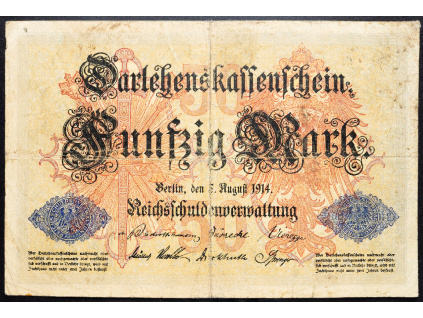 Darlehenskassenschein.
Fünfzig Mark.
Berlin, den 5. August 1914.
Reichsschuldenverwaltung
Wer Darlehnskassenscheine nachmacht oder
verfälscht oder nachgemachte oder verfälschte
sich verschafft und in Verkehr bringt, wird mit
Zuchthaus nicht unter zwei Jahren bestraft.
Wer Darlehnskassenscheine nachmacht oder
verfälscht oder nachgemachte oder verfälschte
sich verschafft und in Verkehr bringt, wird mit
Zuchthaus nicht unter zwei Jahren bestraft.